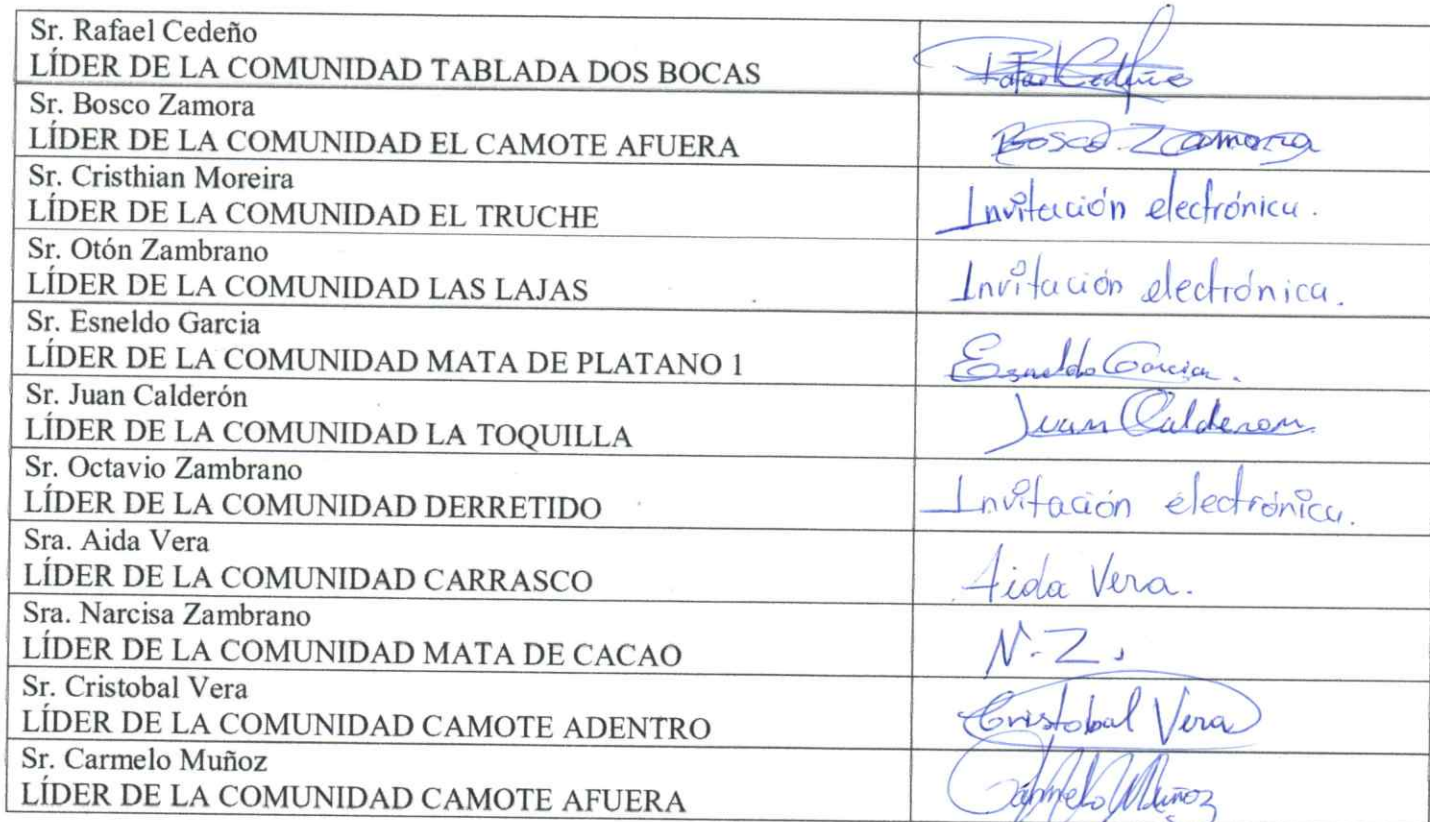 Sr. Rafael Cedeño
LÍDER DE LA COMUNIDAD TABLADA DOS BOCAS
Rafael Cedeño
Sr. Bosco Zamora
LÍDER DE LA COMUNIDAD EL CAMOTE AFUERA
Bosco Zamora
Sr. Cristhian Moreira
LÍDER DE LA COMUNIDAD EL TRUCHE
Invitación electrónica.
Sr. Otón Zambrano
LÍDER DE LA COMUNIDAD LAS LAJAS
Invitación electrónica.
Sr. Esneldo Garcia
LÍDER DE LA COMUNIDAD MATA DE PLATANO 1
Esneldo Garcia.
Sr. Juan Calderón
LÍDER DE LA COMUNIDAD LA TOQUILLA
Juan Calderon
Sr. Octavio Zambrano
LÍDER DE LA COMUNIDAD DERRETIDO
Invitación electrónica.
Sra. Aida Vera
LÍDER DE LA COMUNIDAD CARRASCO
Aida Vera.
Sra. Narcisa Zambrano
LÍDER DE LA COMUNIDAD MATA DE CACAO
N.Z.
Sr. Cristobal Vera
LÍDER DE LA COMUNIDAD CAMOTE ADENTRO
Cristobal Vera
Sr. Carmelo Muñoz
LÍDER DE LA COMUNIDAD CAMOTE AFUERA
Carmelo Muñoz